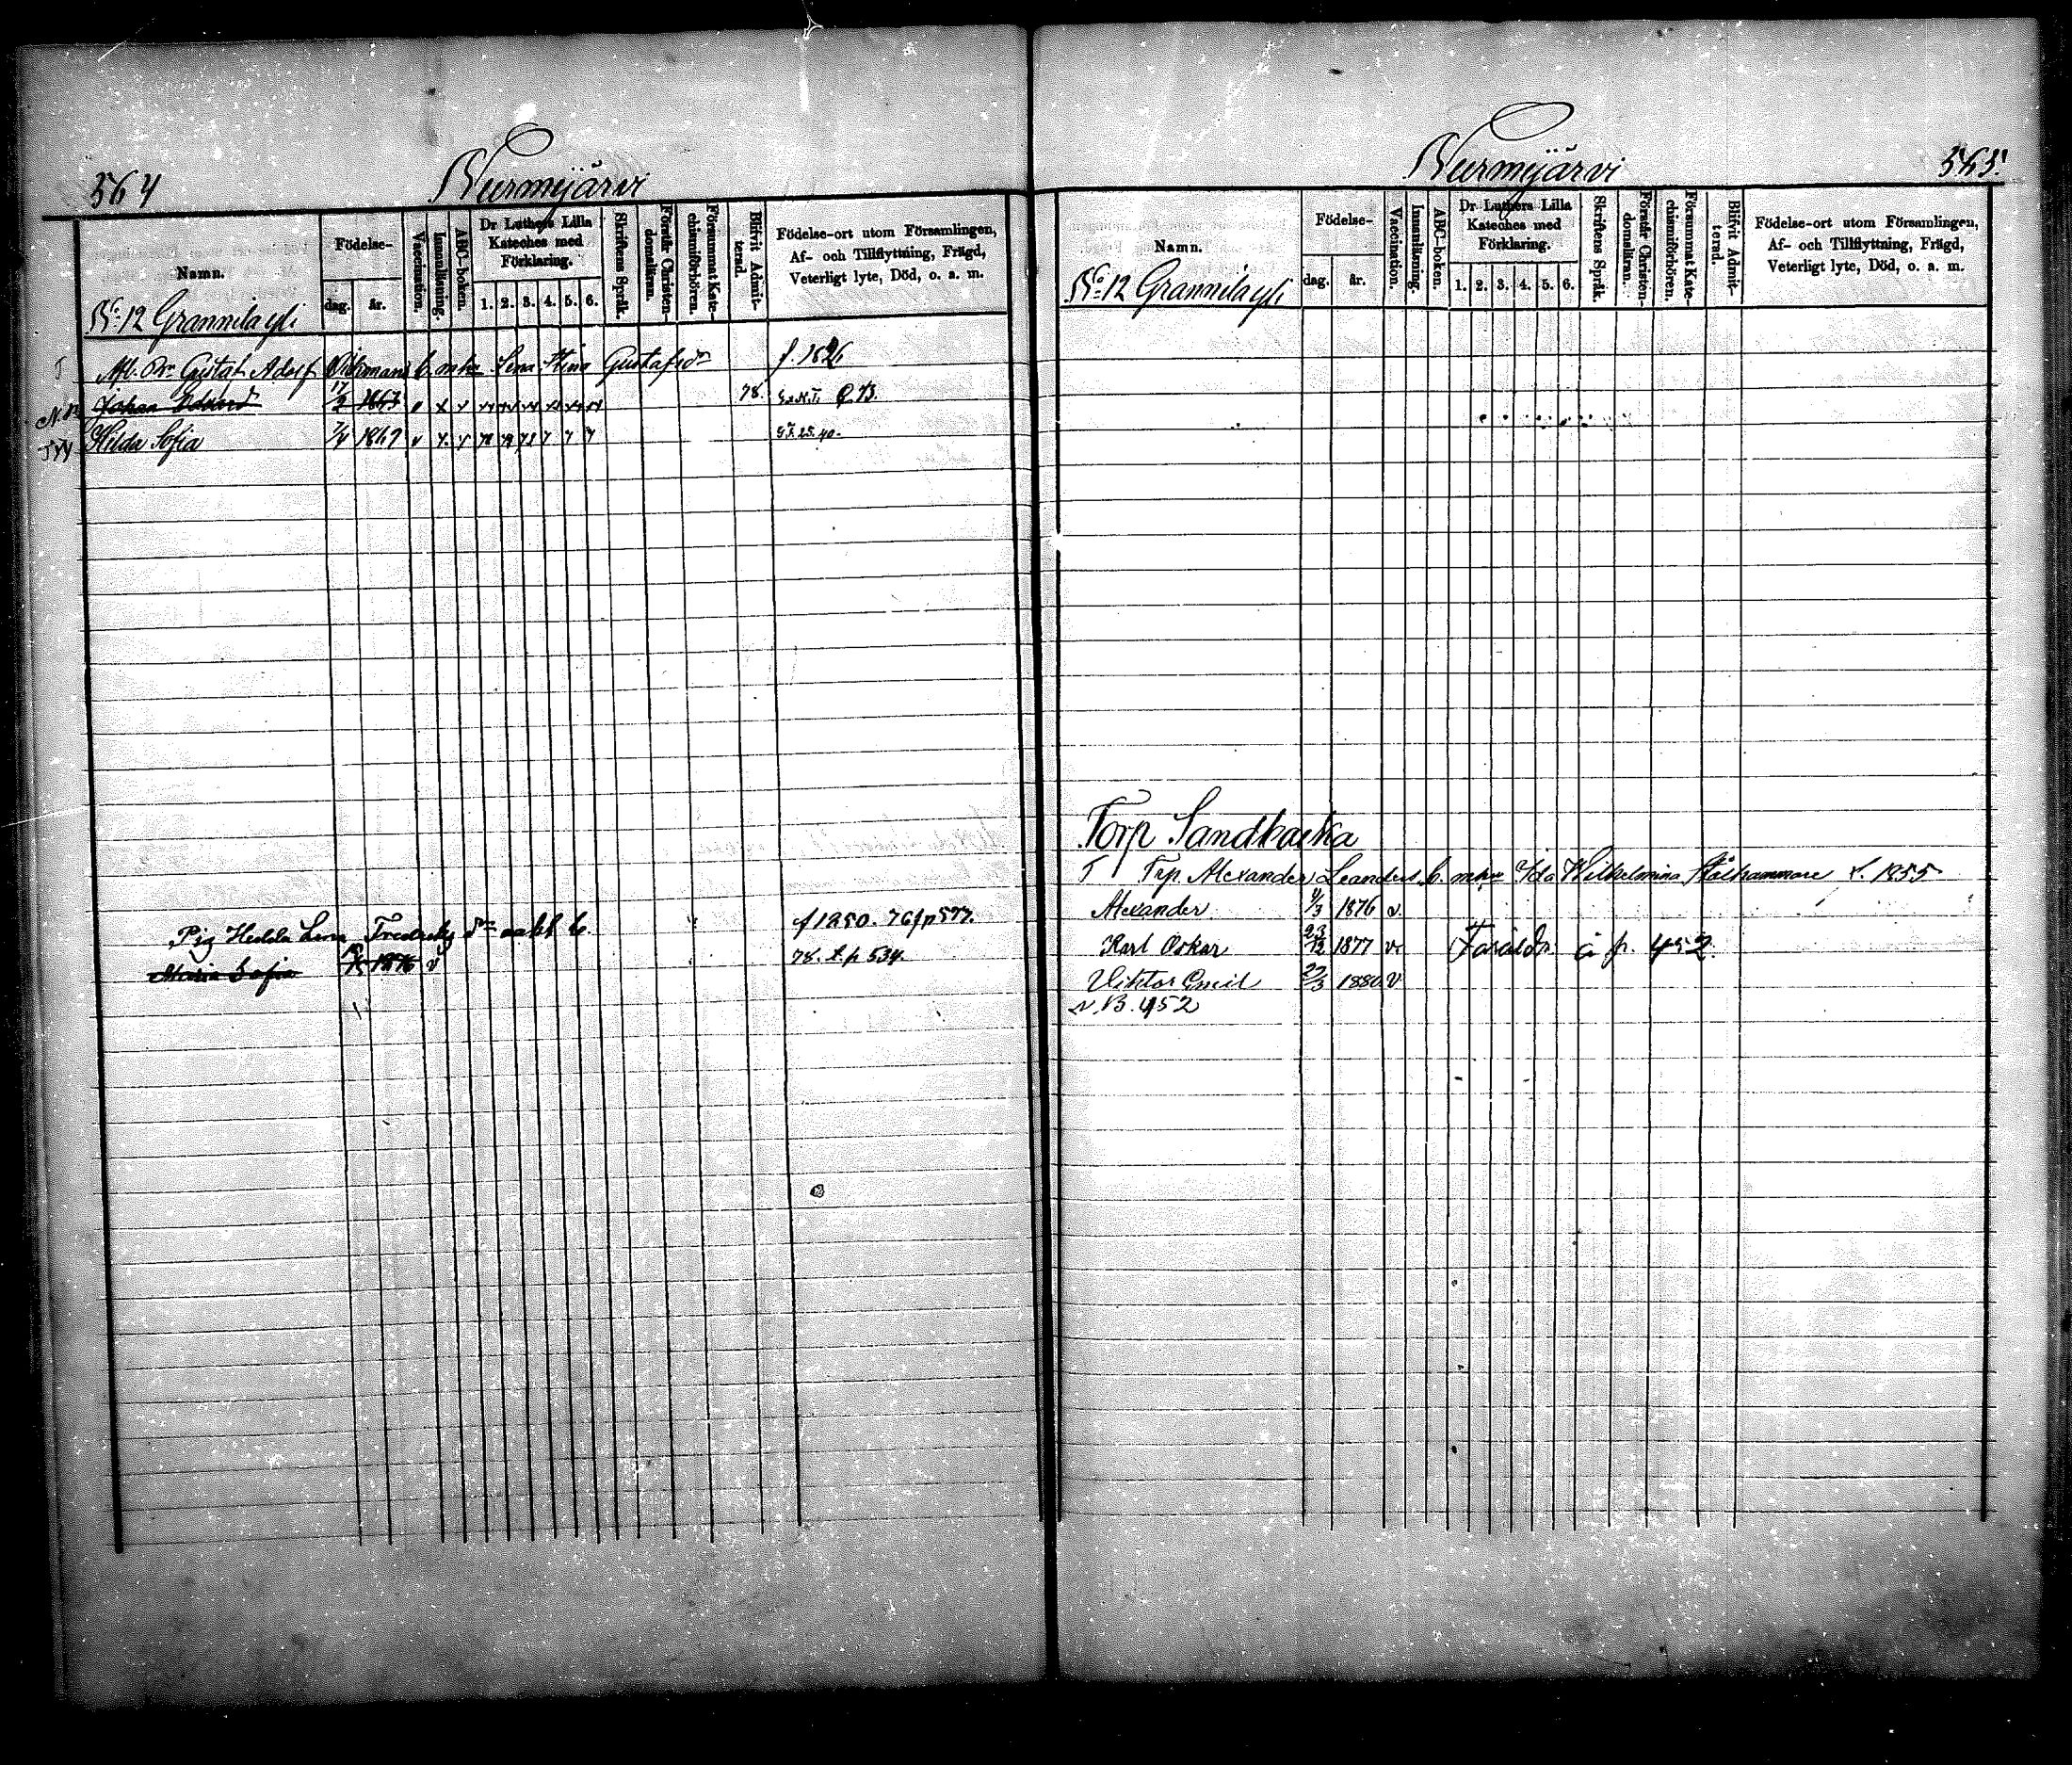 564
Nurmijärvi
Namn.
Födelse-
dag.
år.
Vaccination.
Innanläsning.
ABC-boken.
Dr Luthers Lilla Kateches med Förklaring.
1. 2. 3. 4. 5. 6.
Skriftens Språk.
Förstår Christen-domsläran.
Försummat Kate-chismiförhören.
Blifvit Admit-terad.
Födelse-ort utom Församlingen, Af- och Tillflyttning, Frägd, Veterligt lyte, Död, o. a. m.
No 12 Grannila yli
T Gustaf Adolf Öhmans b. m. hu Lena Stina Gustafsdr f. 1826
N.B. Johan Edvard 17/2 1863 78.
Hilda Sofia 7/4 1867 v 25. 40.
Pig Hedda Lena Fredriksdr f 1850. 76 f p 577.
Maria Sofia 1876 v 78. t. p 534.
Nurmijärvi
565.
Namn.
Födelse-
dag.
år.
Vaccination.
Innanläsning.
ABC-boken.
Dr Luthers Lilla Kateches med Förklaring.
1. 2. 3. 4. 5. 6.
Skriftens Språk.
Förstår Christen-domsläran.
Försummat Kate-chismiförhören.
Blifvit Admit-terad.
Födelse-ort utom Församlingen, Af- och Tillflyttning, Frägd, Veterligt lyte, Död, o. a. m.
No 12 Grannila yli
Torp Sandbacka
T Trp. Alexander Leanders b. m. hu Ida Wilhelmina Stålhammare f. 1855
Alexander 4/3 1876 v.
Karl Oskar 23/12 1877 v. Föräldr. å p. 452.
Viktor Emil 27/3 1880 v
N.B. 452